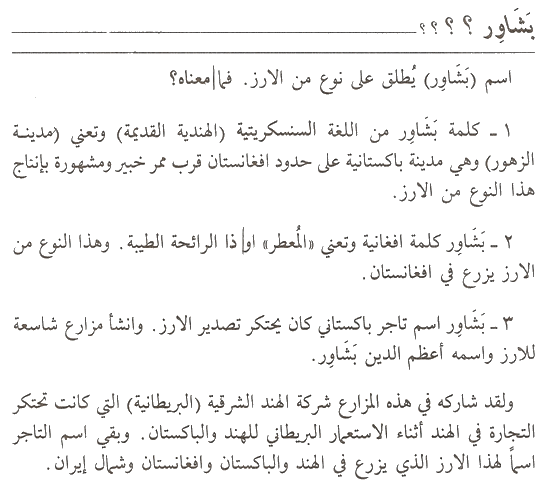 بَشَاوِر ؟ ؟ ؟ ؟
اسم (بَشَاوِر) يُطلق على نوع من الارز. فما معناه؟
١ ـ كلمة بَشَاوِر من اللغة السنسكريتية (الهندية القديمة) وتعني (مدينة
الزهور) وهي مدينة باكستانية على حدود افغانستان قرب ممر خبير ومشهورة بإنتاج
هذا النوع من الارز.
٢ ـ بَشَاوِر كلمة افغانية وتعني «المُعطر» او ذا الرائحة الطيبة. وهذا النوع من
الارز يزرع في افغانستان.
٣ ـ بَشَاوِر اسم تاجر باكستاني كان يحتكر تصدير الارز. وانشأ مزارع شاسعة
للارز واسمه أعظم الدين بَشَاوِر.
ولقد شاركه في هذه المزارع شركة الهند الشرقية (البريطانية) التي كانت تحتكر
التجارة في الهند أثناء الاستعمار البريطاني للهند والباكستان. وبقي اسم التاجر
اسماً لهذا الارز الذي يزرع في الهند والباكستان وافغانستان وشمال إيران.